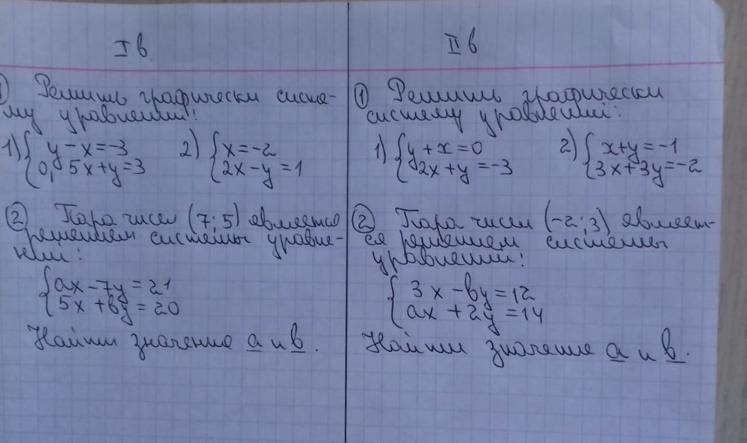 I в
① Решить графически систе-
му уравнений:
1) { y - x = -3
0,5x + y = 3
2) { x = -2
2x - y = 1
② Пара чисел (7; 5) является
решением системы уравне-
ний:
{ ax - 7y = 21
5x + by = 20
Найти значение a и b.
II в
① Решить графически
систему уравнений:
1) { y + x = 0
2x + y = -3
2) { x + y = -1
3x + 3y = -2
② Пара чисел (-2; 3) являет-
ся решением системы
уравнений:
{ 3x - by = 12
ax + 2y = 14
Найти значение a и b.